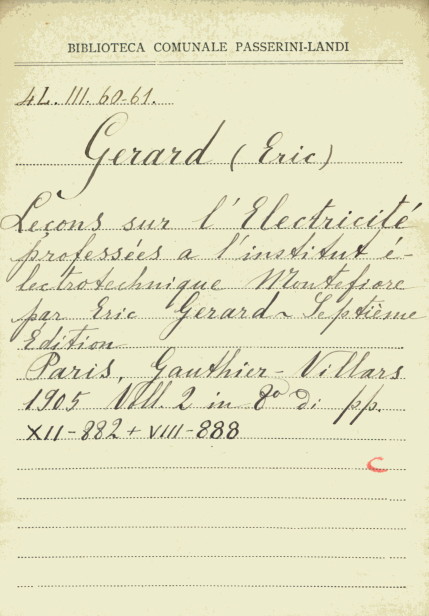 BIBLIOTECA COMUNALE PASSERINI-LANDI
4L. III. 60-61.
Gerard (Eric)
Leçons sur l'Electricité
professées a l'institut é-
lectrotechnique Montefiore
par Eric Gerard - Septième
Edition
Paris, Gauthier-Villars
1905 Voll. 2 in 8° di pp.
XII-882 + VIII-888
C